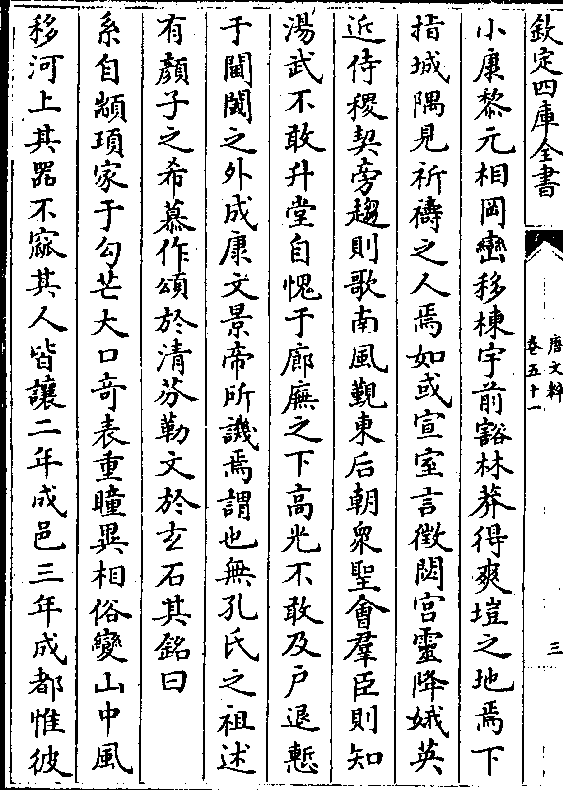 欽定四庫全書
唐文粹
卷五十一
三
小康黎元相岡巒移棟宇前豁林莽得爽塏之地焉下
指城隅見祈禱之人焉如或宣室言徵閟宮靈降娥英
近侍稷契旁趨則歌南風覲東后朝衆聖會羣臣則知
湯武不敢升堂自愧于廊廡之下高光不敢及户退慙
于閫閾之外成康文景帝所譏焉謂也無孔氏之祖述
有顔子之希慕作頌於清芬勒文於玄石其銘曰
系自顓頊家于勾芒大口竒表重瞳異相俗變山中風
移河上其器不窳其人皆讓二年成邑三年成都惟彼